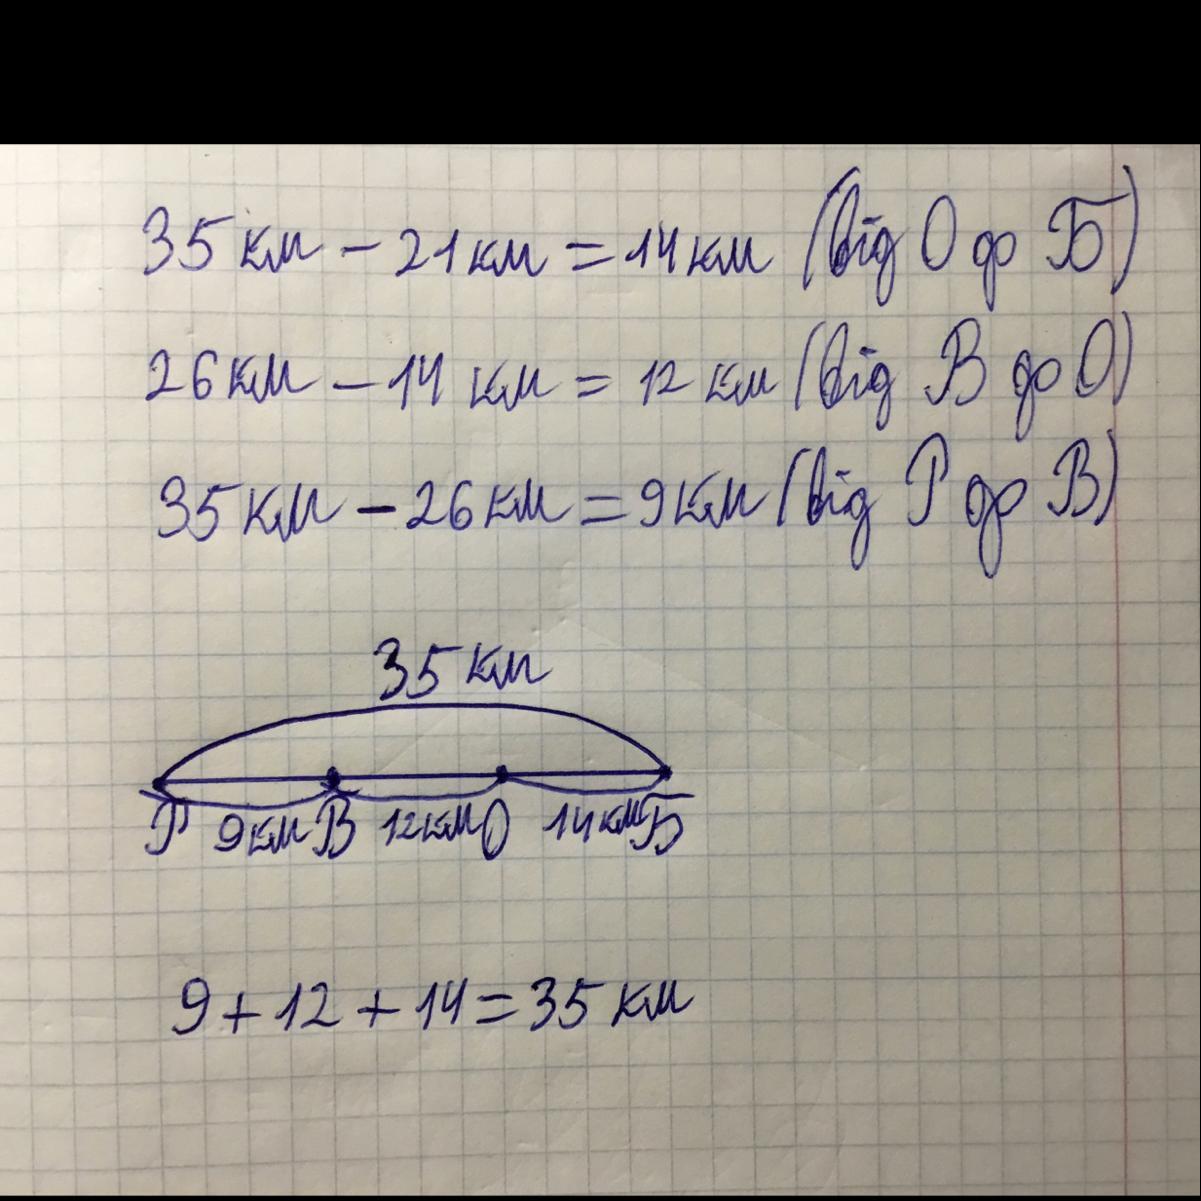 35 км - 21 км = 14 км (від О до Б)
26 км - 14 км = 12 км (від В до О)
35 км - 26 км = 9 км (від Р до В)
35 км
Р 9 км В 12 км О 14 км Б
9 + 12 + 14 = 35 км